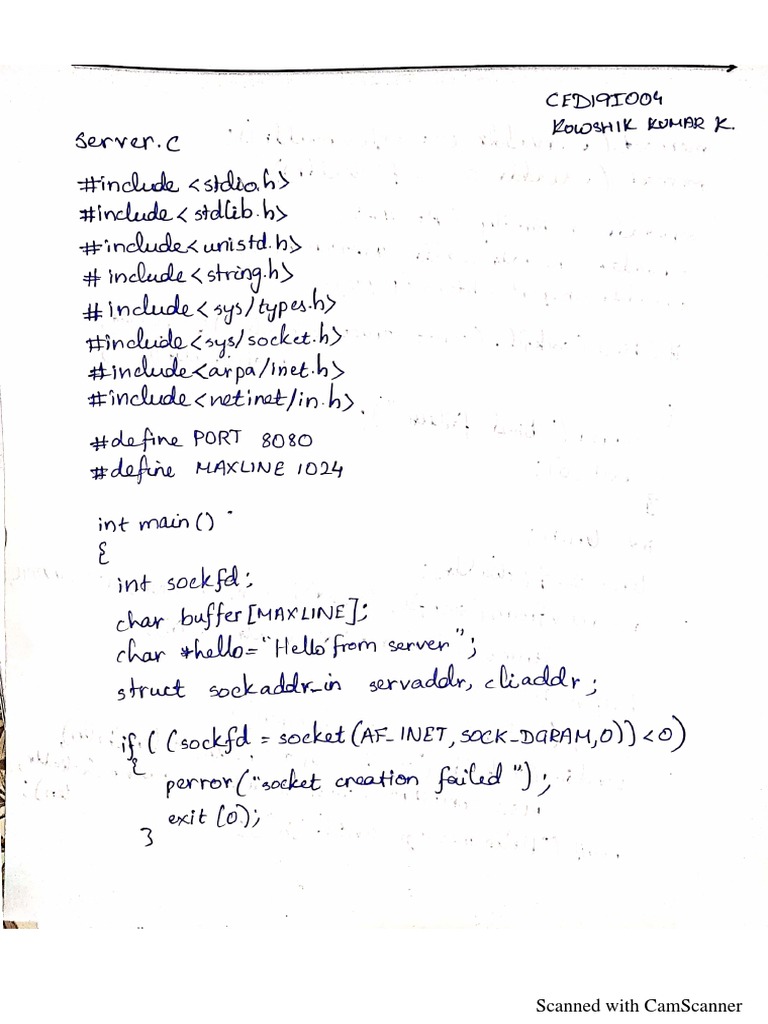 CED19I004
KOWSHIK KUMAR K.
server.c
#include <stdio.h>
#include < stdlib.h>
#include <unistd.h>
# include <string.h>
# include < sys/types.h>
#include <sys/socket.h>
#include <arpa/inet.h>
#include <netinet/in.h>
#define PORT 8080
#define MAXLINE 1024
int main()
{
int sockfd;
char buffer[MAXLINE];
char *hello="Hello from server";
struct sockaddr_in servaddr, cliaddr;
if ( (sockfd = socket(AF_INET, SOCK_DGRAM,0)) <0)
{
perror("socket creation failed");
exit(0);
}
Scanned with CamScanner